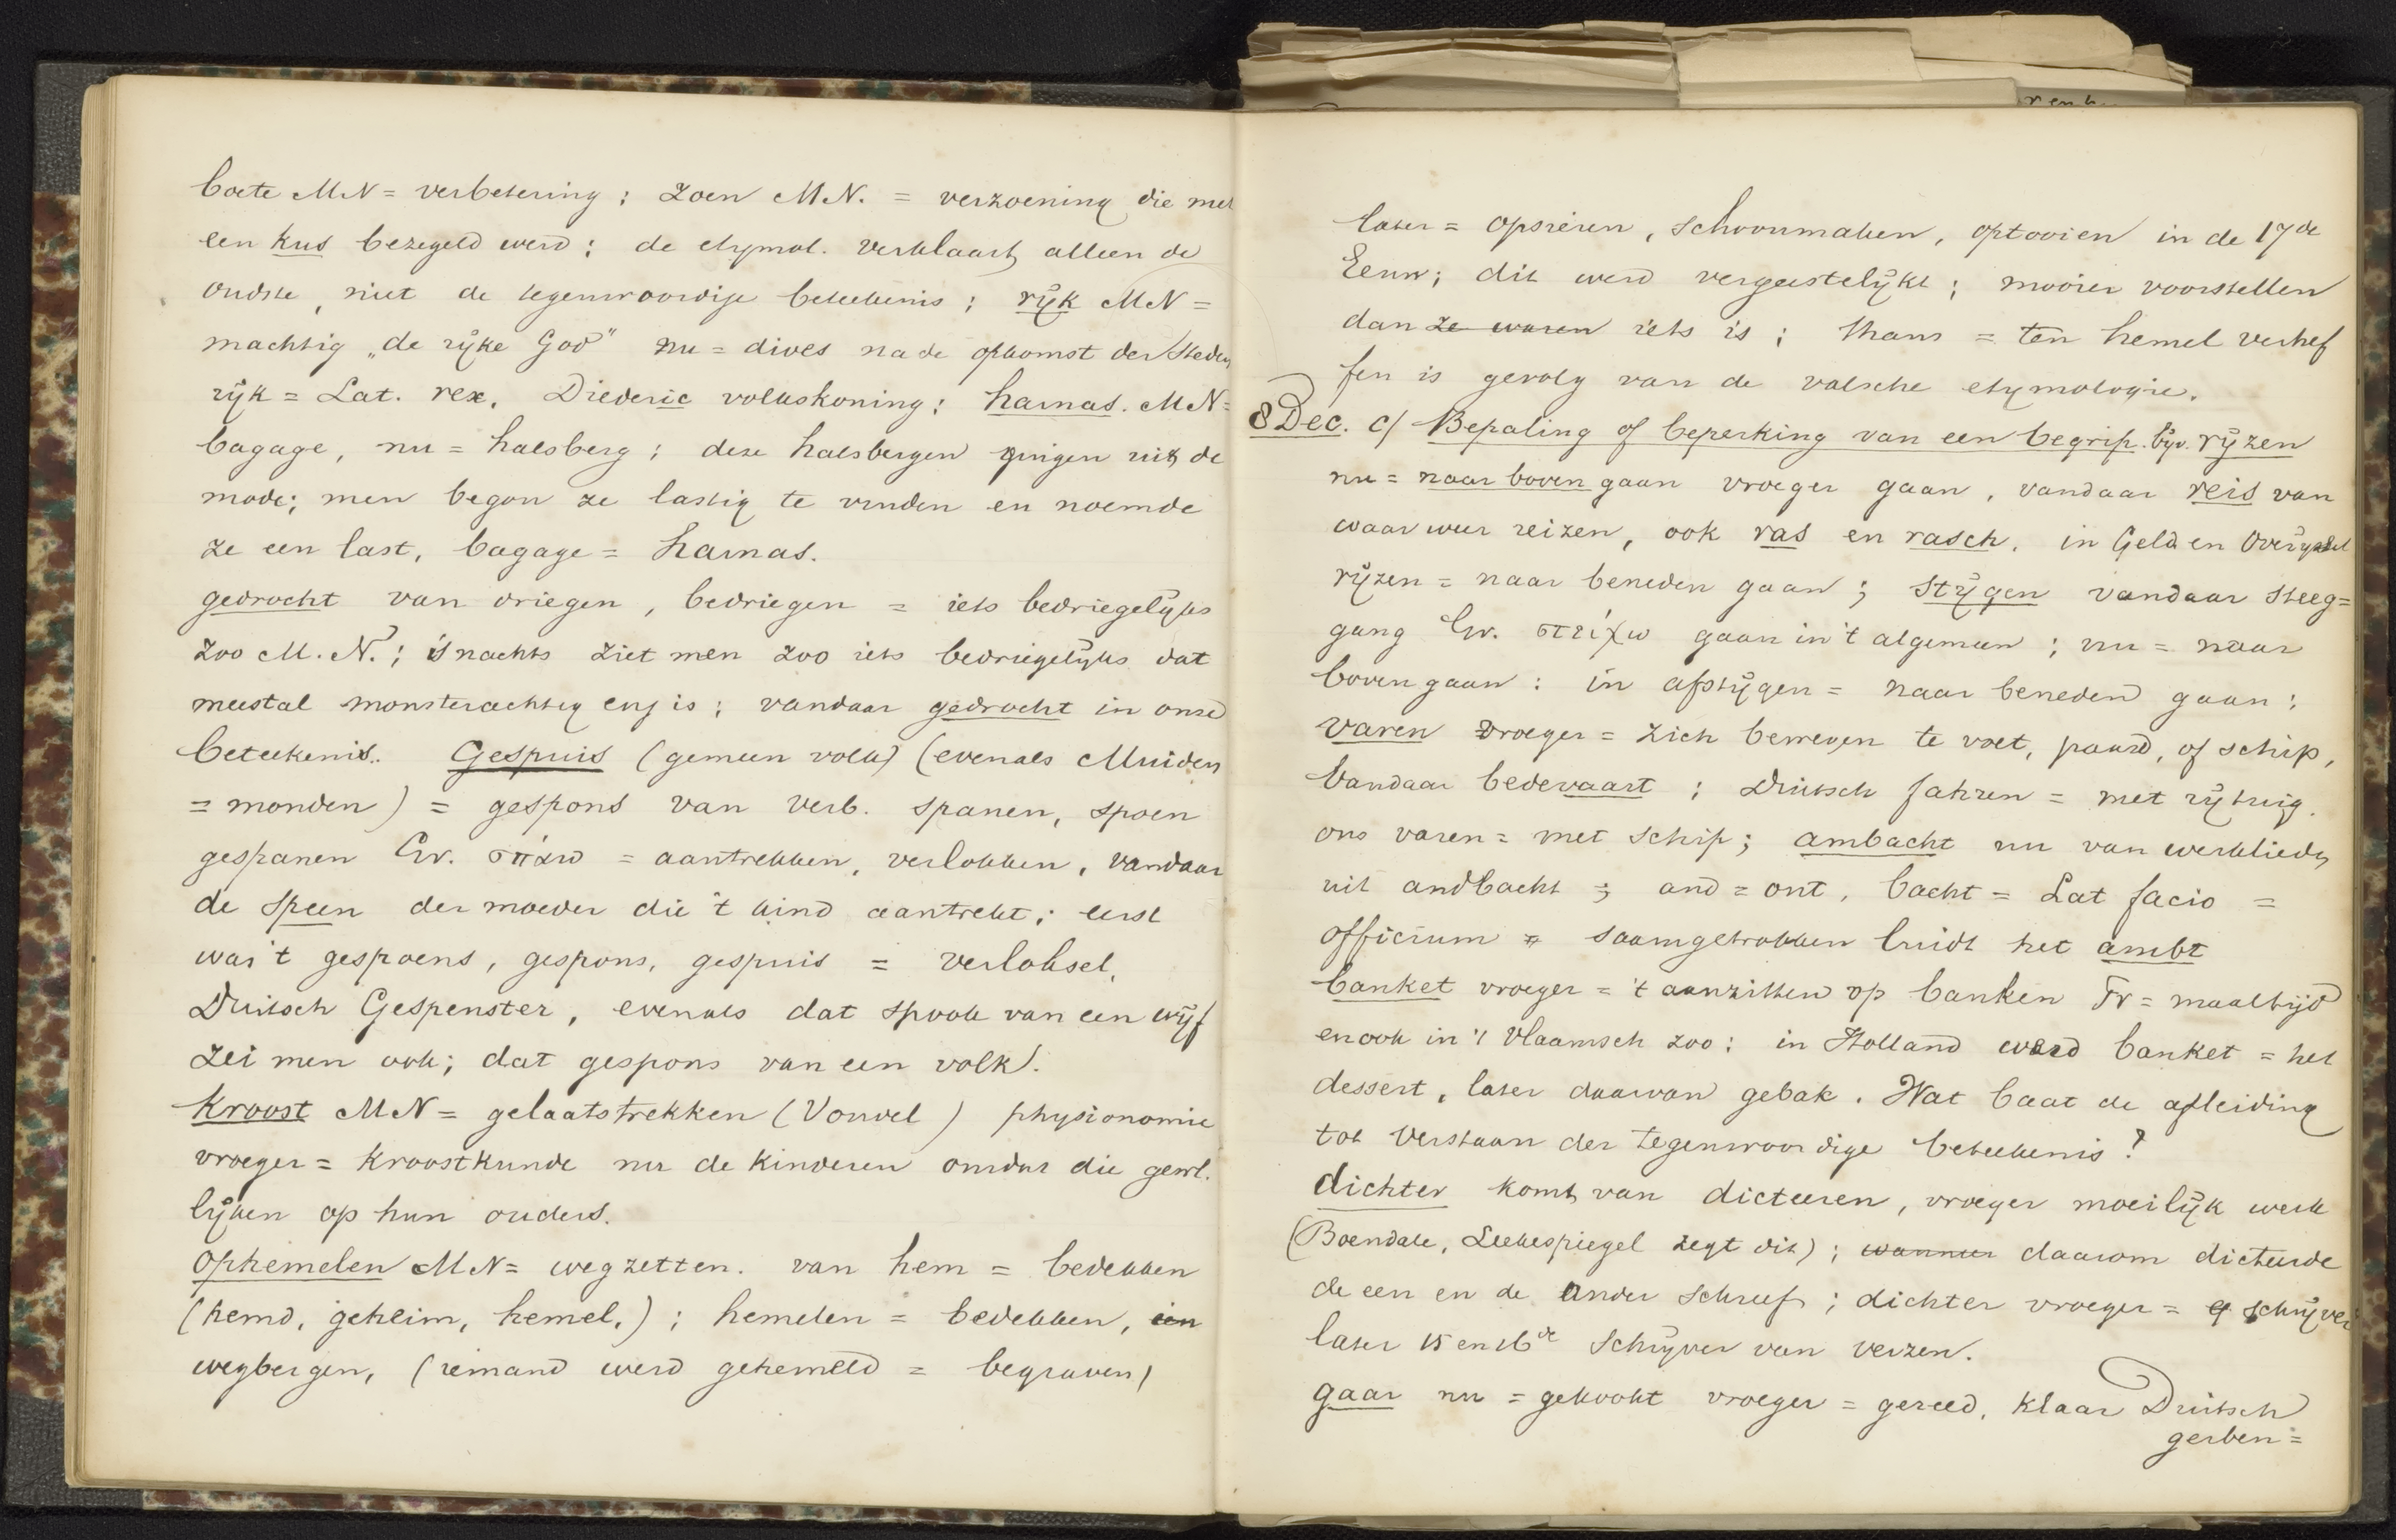 boete MN = verbetering ; zoen MN. = verzoening die met
een kus bezegeld werd ; de etymol. verklaart alleen de
oudste, niet de tegenwoordige beteekenis ; rijk MN =
machtig „de rijke God" nu = dives na de opkomst der steden
rijk = Lat. rex. Diederic volkskoning ; harnas. MN =
bagage, nu = halsberg ; deze halsbergen gingen uit de
mode; men begon ze lastig te vinden en noemde
ze een last, bagage = harnas.
gedrocht van driegen, bedriegen = iets bedriegelijks
zoo M. N. ; 's nachts ziet men zoo iets bedriegelijks dat
meestal monsterachtig enz is ; vandaar gedrocht in onze
beteekenis. Gespuis (gemeen volk) (evenals Muiden
= monden) = gespons van verb. spanen, spoen
gespanen Gr. σπάω = aantrekken, verlokken, vandaar
de speen der moeder die 't kind aantrekt ; eerst
was 't gespoens, gespons, gespuis = verloksel.
Duitsch Gespenster, evenals dat spook van een wijf
zei men ook; dat gespons van een volk).
Kroost MN = gelaatstrekken (Vondel) physionomie
vroeger = kroostkunde nu de kinderen omdat die gewl.
lijken op hun ouders.
Ophemelen MN = wegzetten. van hem = bedekken
(hemd, geheim, hemel,) ; hemelen = bedekken, een
wegbergen, (iemand werd gehemeld = begraven)
later = opsieren, schoonmaken, optooien in de 17de
Eeuw ; dit werd vergeestelijkt ; mooier voorstellen
dan ze waren iets is ; thans = ten hemel verhef
fen is gevolg van de valsche etymologie.
8 Dec. c/ Bepaling of beperking van een begrip. bijv. rijzen
nu = naar boven gaan vroeger gaan, vandaar reis van
waar weer reizen, ook ras en rasch. in Geld en Overijssel
rijzen = naar beneden gaan ; stijgen vandaar steeg =
gang Gr. στείχω gaan in 't algemeen ; nu = naar
boven gaan : in afstijgen = naar beneden gaan ;
varen vroeger = zich bewegen te voet, paard, of schip,
vandaar bedevaart ; Duitsch fahren = met rijtuig.
ons varen = met schip ; ambacht nu van werklieden
uit andbacht ; and = ont, bacht = Lat facio =
officium = saamgetrokken luidt het ambt
banket vroeger = 't aanzitten op banken Fr = maaltijd
en ook in 't Vlaamsch zoo : in Holland werd banket = het
dessert, later daarvan gebak. Wat baat de afleiding
tot verstaan der tegenwoordige beteekenis ?
dichter komt van dicteeren, vroeger moeilijk werk
(Boendale, Leekespiegel zegt dit) ; wanneer daarom dicteerde
de een en de ander schreef ; dichter vroeger = schrijver
later 15 en 16de schrijver van verzen.
gaar nu = gekookt vroeger = gereed, klaar Duitsch
gerben =